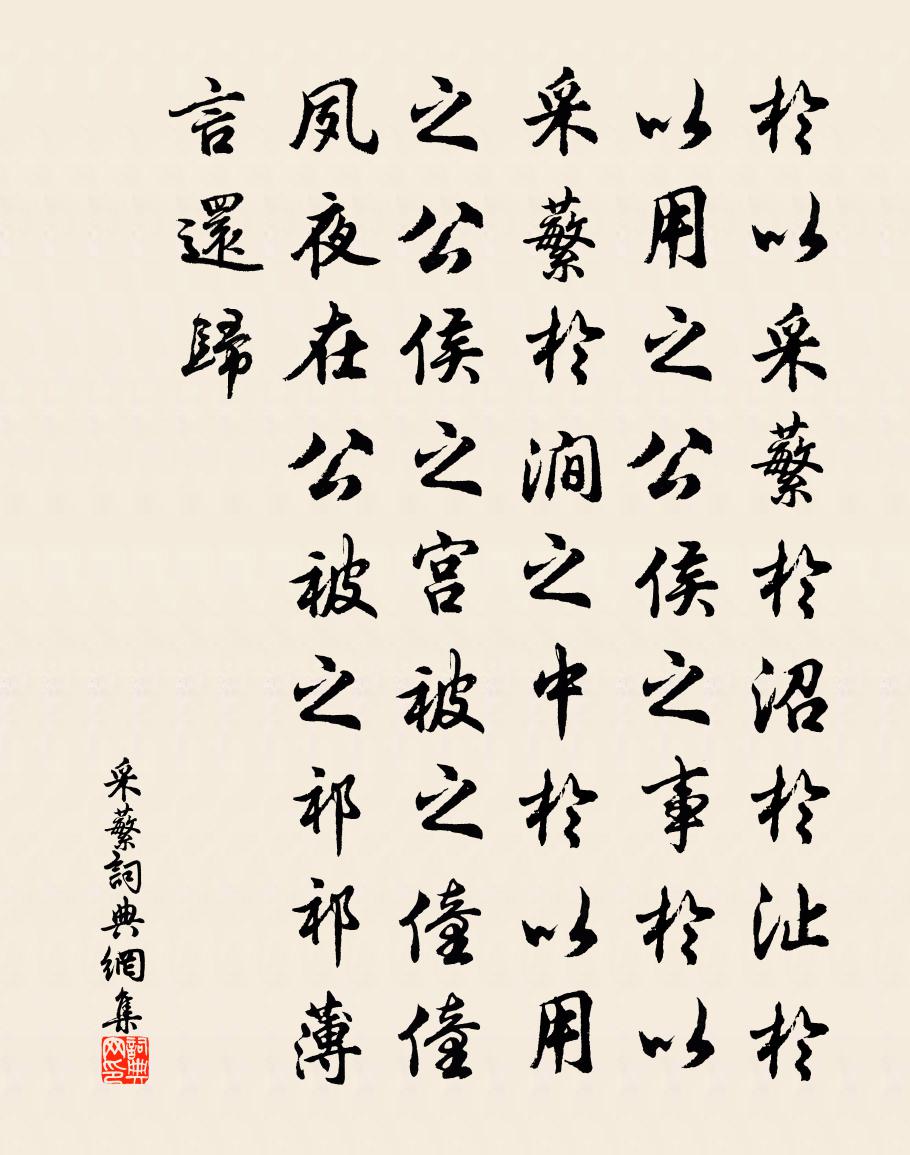 於以采蘩於沼於沚於
以用之公侯之事於以
采蘩於澗之中於以用
之公侯之宮被之僮僮
夙夜在公被之祁祁薄
言還歸
采蘩詞典網集
詞典网印